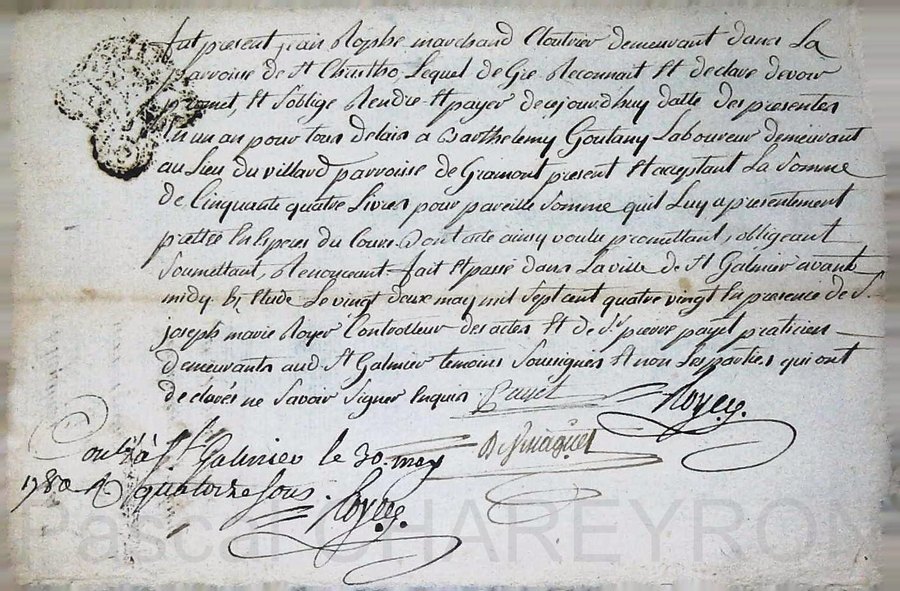 fut present jean Rophe marchand Cloutrier demeurant dans La
parroise de St Christho, Lequel de Gre Reconnait Et declare devoir
promet, Et s'oblige Rendre Et payer de cejourdhuy datte des presentes
En un an pour tous delais a Barthelemy Goutany Laboureur demeurant
au Lieu du villard parroise de Gramont present Et acceptant La Somme
de Cinquante quatre Livres pour pareille Somme quil Luy a presentement
prettée En Especes du Cours. Dont acte ainsy voulu promettant, obligeant
Soumettant, Renonçeant fait Et passé dans La ville de St Galmier avant
midy Etude Le vingt deux may mil Sept cent quatre vingt En presence de Sr
joseph marie Royer Controlleur des actes Et de Sr pierre payet praticien
demeurants aud St Galmier temoins Soussignés Et non Les parties qui ont
declarés ne Savoir Signer Enquis Payet Royer.
Controllé à St Galmier le 30. may
1780 R quatorze Sous. Royer.
Pascal CHAREYRON